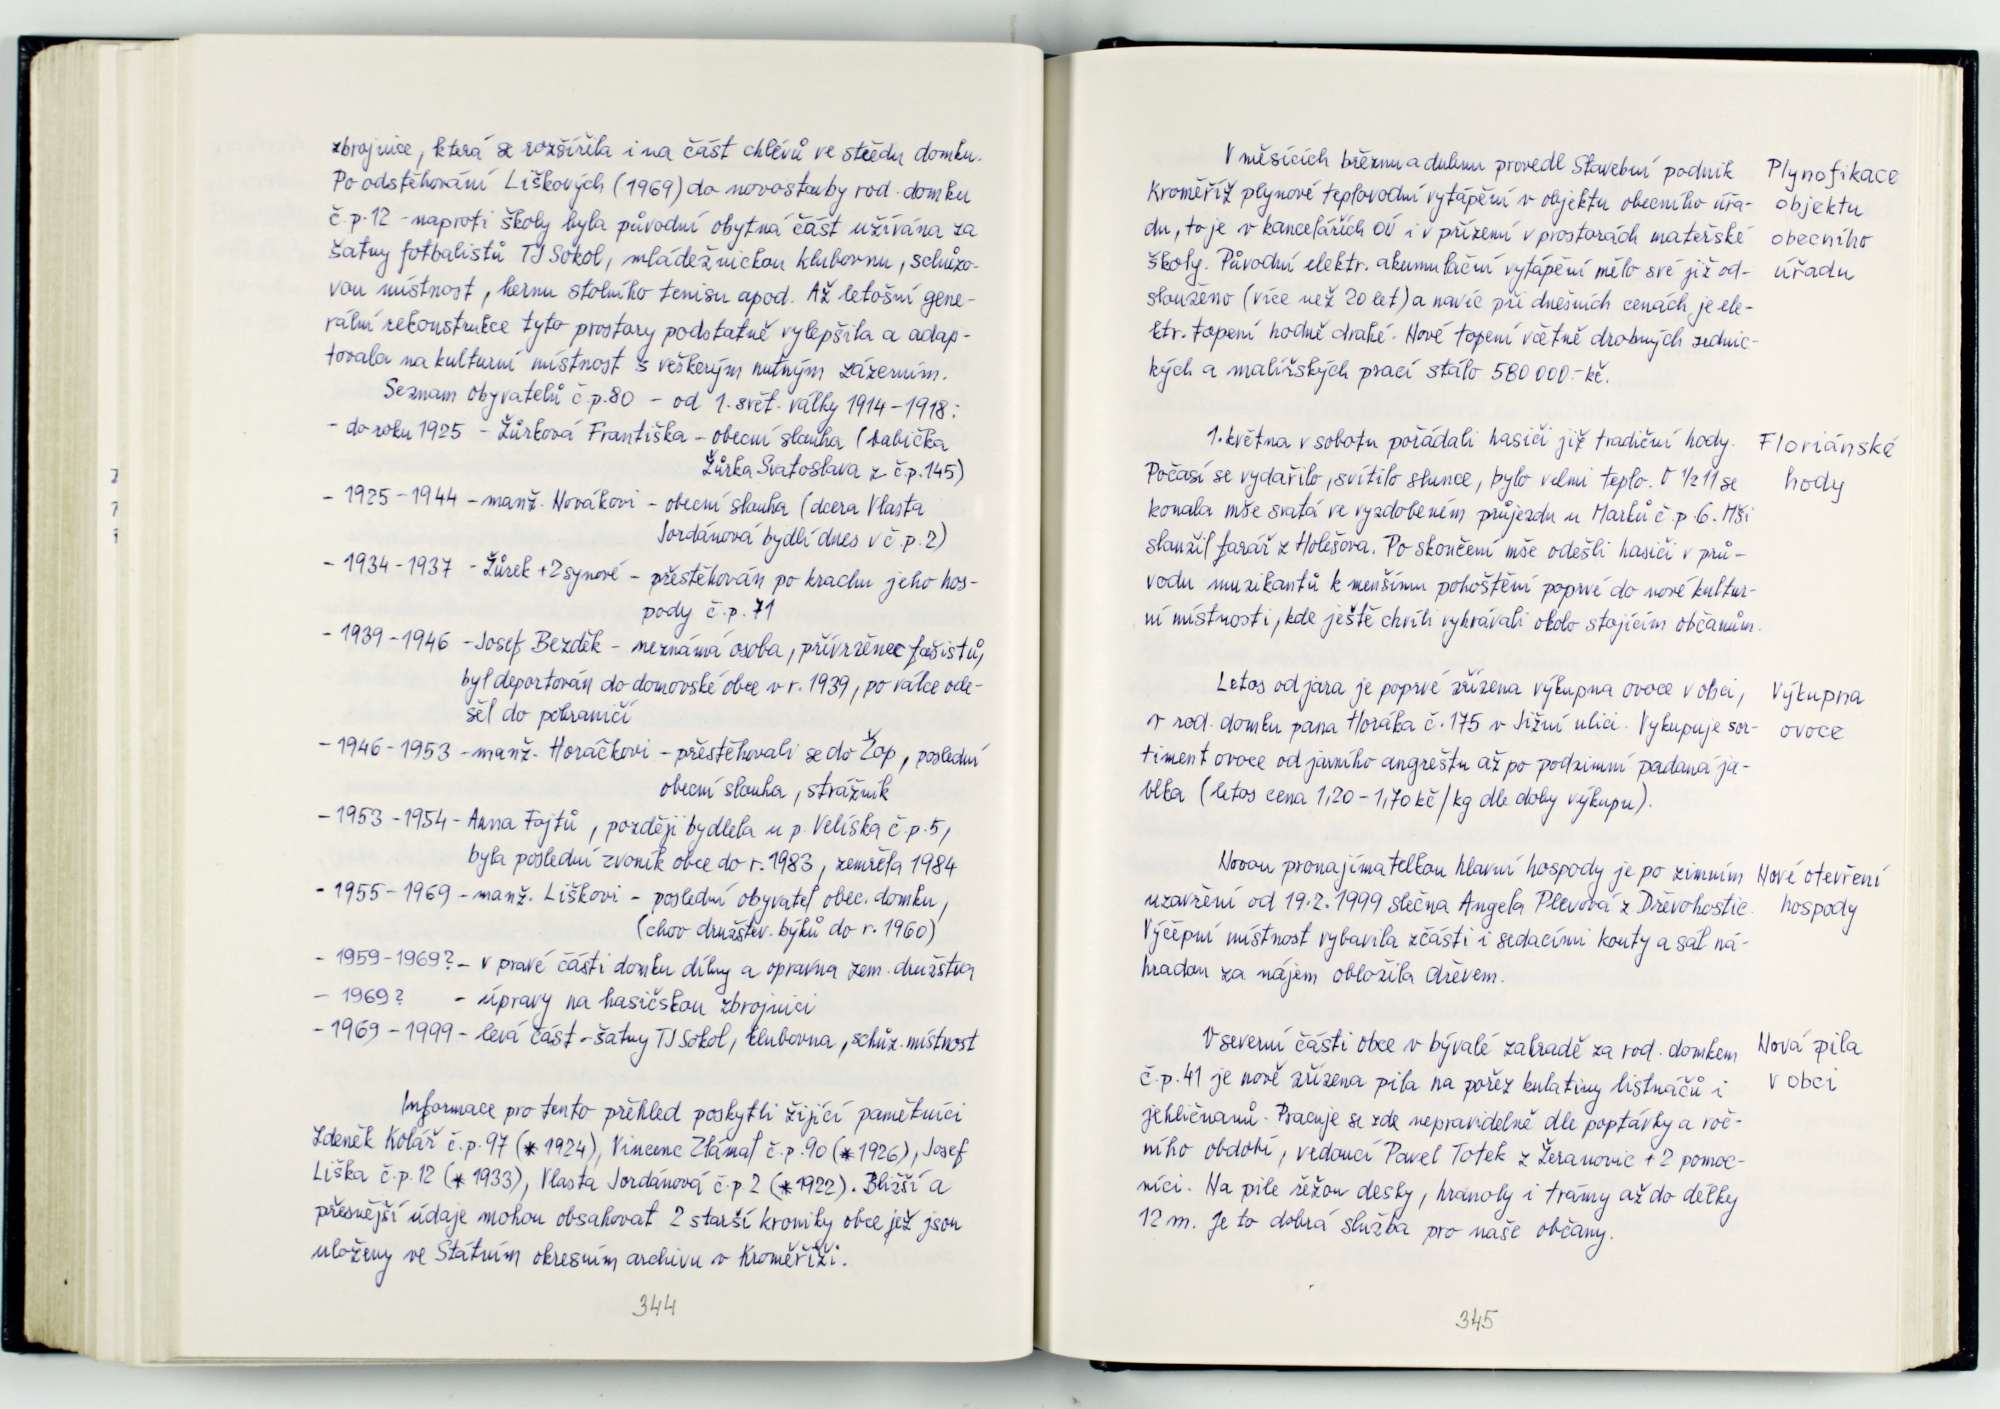 zbrojnice, která se rozšířela i na část chlévů ve středu domku.
Po odstěhování Liškových (1969) do novostavby rod. domku
č.p.12 - naproti školy byla původní obytná část užívána za
šatny fotbalistů TJ Sokol, mládežnickou klubovnu, schůzo-
vou místnost, hernu stolního tenisu apod. Až letošní gene-
rální rekonstrukce tyto prostory podstatně vylepšila a adap-
tovala na kulturní místnost s veškerým nutným zázemím.
Seznam obyvatelů č.p.80 - od 1. svět. války 1914-1918:
- do roku 1925 - Žůrková Františka - obecní slouha (babička
Žůrka Svatoslava z č.p.145)
- 1925-1944 - manž. Novákovi - obecní slouha (dcera Vlasta
Jordánová bydlí dnes v č.p.2)
- 1934-1937 - Žůrek + 2 synové - přestěhován po krachu jeho hos-
pody č.p.71
- 1939-1946 - Josef Bezděk - neznámá osoba, přívrženec fašistů,
byl deportován do domovské obce v r. 1939, po válce ode-
šel do pohraničí
- 1946-1953 - manž. Horáčkovi - přestěhovali se do Žop, poslední
obecní slouha, strážník
- 1953-1954 - Anna Fojtů, později bydlela u p. Velíška č.p.5,
byla poslední zvoník obce do r. 1983, zemřela 1984
- 1955-1969 - manž. Liškovi - poslední obyvatel obec. domku,
(chov družstev. býků do r. 1960)
- 1959-1969? - v pravé části domku dílny a opravna zem. družstva
- 1969? - úpravy na hasičskou zbrojnici
- 1969-1999 - levá část - šatny TJ Sokol, klubovna, schůz. místnost
Informace pro tento přehled poskytli žijící pamětníci
Zdeněk Kolář č.p.97 (*1924), Vincenc Zlámal č.p.90 (*1926), Josef
Liška č.p.12 (*1933), Vlasta Jordánová č.p 2 (*1922). Bližší a
přesnější údaje mohou obsahovat 2 starší kroniky obce jež jsou
uloženy ve Státním okresním archivu v Kroměříži.
344
V měsících březnu a dubnu provedl Stavební podnik
Kroměříž plynové teplovodní vytápění v objektu obecního úřa-
du, to je v kancelářích OÚ i v přízemí v prostorách mateřské
školy. Původní elektr. akumulační vytápění mělo své již od-
slouženo (více než 20 let) a navíc při dnešních cenách je ele-
ktr. topení hodně drahé. Nové topení včetně drobných zednic-
kých a malířských prací stálo 580 000.- kč.
Plynofikace
objektu
obecního
úřadu
1. května v sobotu pořádali hasiči již tradiční hody.
Počasí se vydařilo, svítilo slunce, bylo velmi teplo. V 1/2 11 se
konala mše svatá ve vyzdobeném průjezdu u Marků č.p.6. Mši
sloužil farář z Holešova. Po skončení mše odešli hasiči v prů-
vodu muzikantů k menšímu pohoštění poprvé do nové kultur-
ní místnosti, kde ještě chvíli vyhrávali okolo stojícím občanům.
Floriánské
hody
Letos od jara je poprvé zřízena výkupna ovoce v obci,
v rod. domku pana Horáka č.175 v Jižní ulici. Vykupuje sor-
timent ovoce od jarního angreštu až po podzimní padaná ja-
blka (letos cena 1,20 - 1,70 kč/kg dle doby výkupu).
Výkupna
ovoce
Novou pronajímatelkou hlavní hospody je po zimním
uzavření od 19.2.1999 slečna Angela Plevová z Dřevohostic.
Výčepní místnost vybavila zčásti i sedacími kouty a sál ná-
hradou za nájem obložila dřevem.
Nové otevření
hospody
V severní části obce v bývalé zahradě za rod. domkem
č.p.41 je nově zřízena pila na pořez kulatiny listnáčů i
jehličnanů. Pracuje se zde nepravidelně dle poptávky a roč-
ního období, vedoucí Pavel Totek z Žeranovic + 2 pomoc-
níci. Na pile řežou desky, hranoly i trámy až do délky
12 m. Je to dobrá služba pro naše občany.
Nová pila
v obci
345